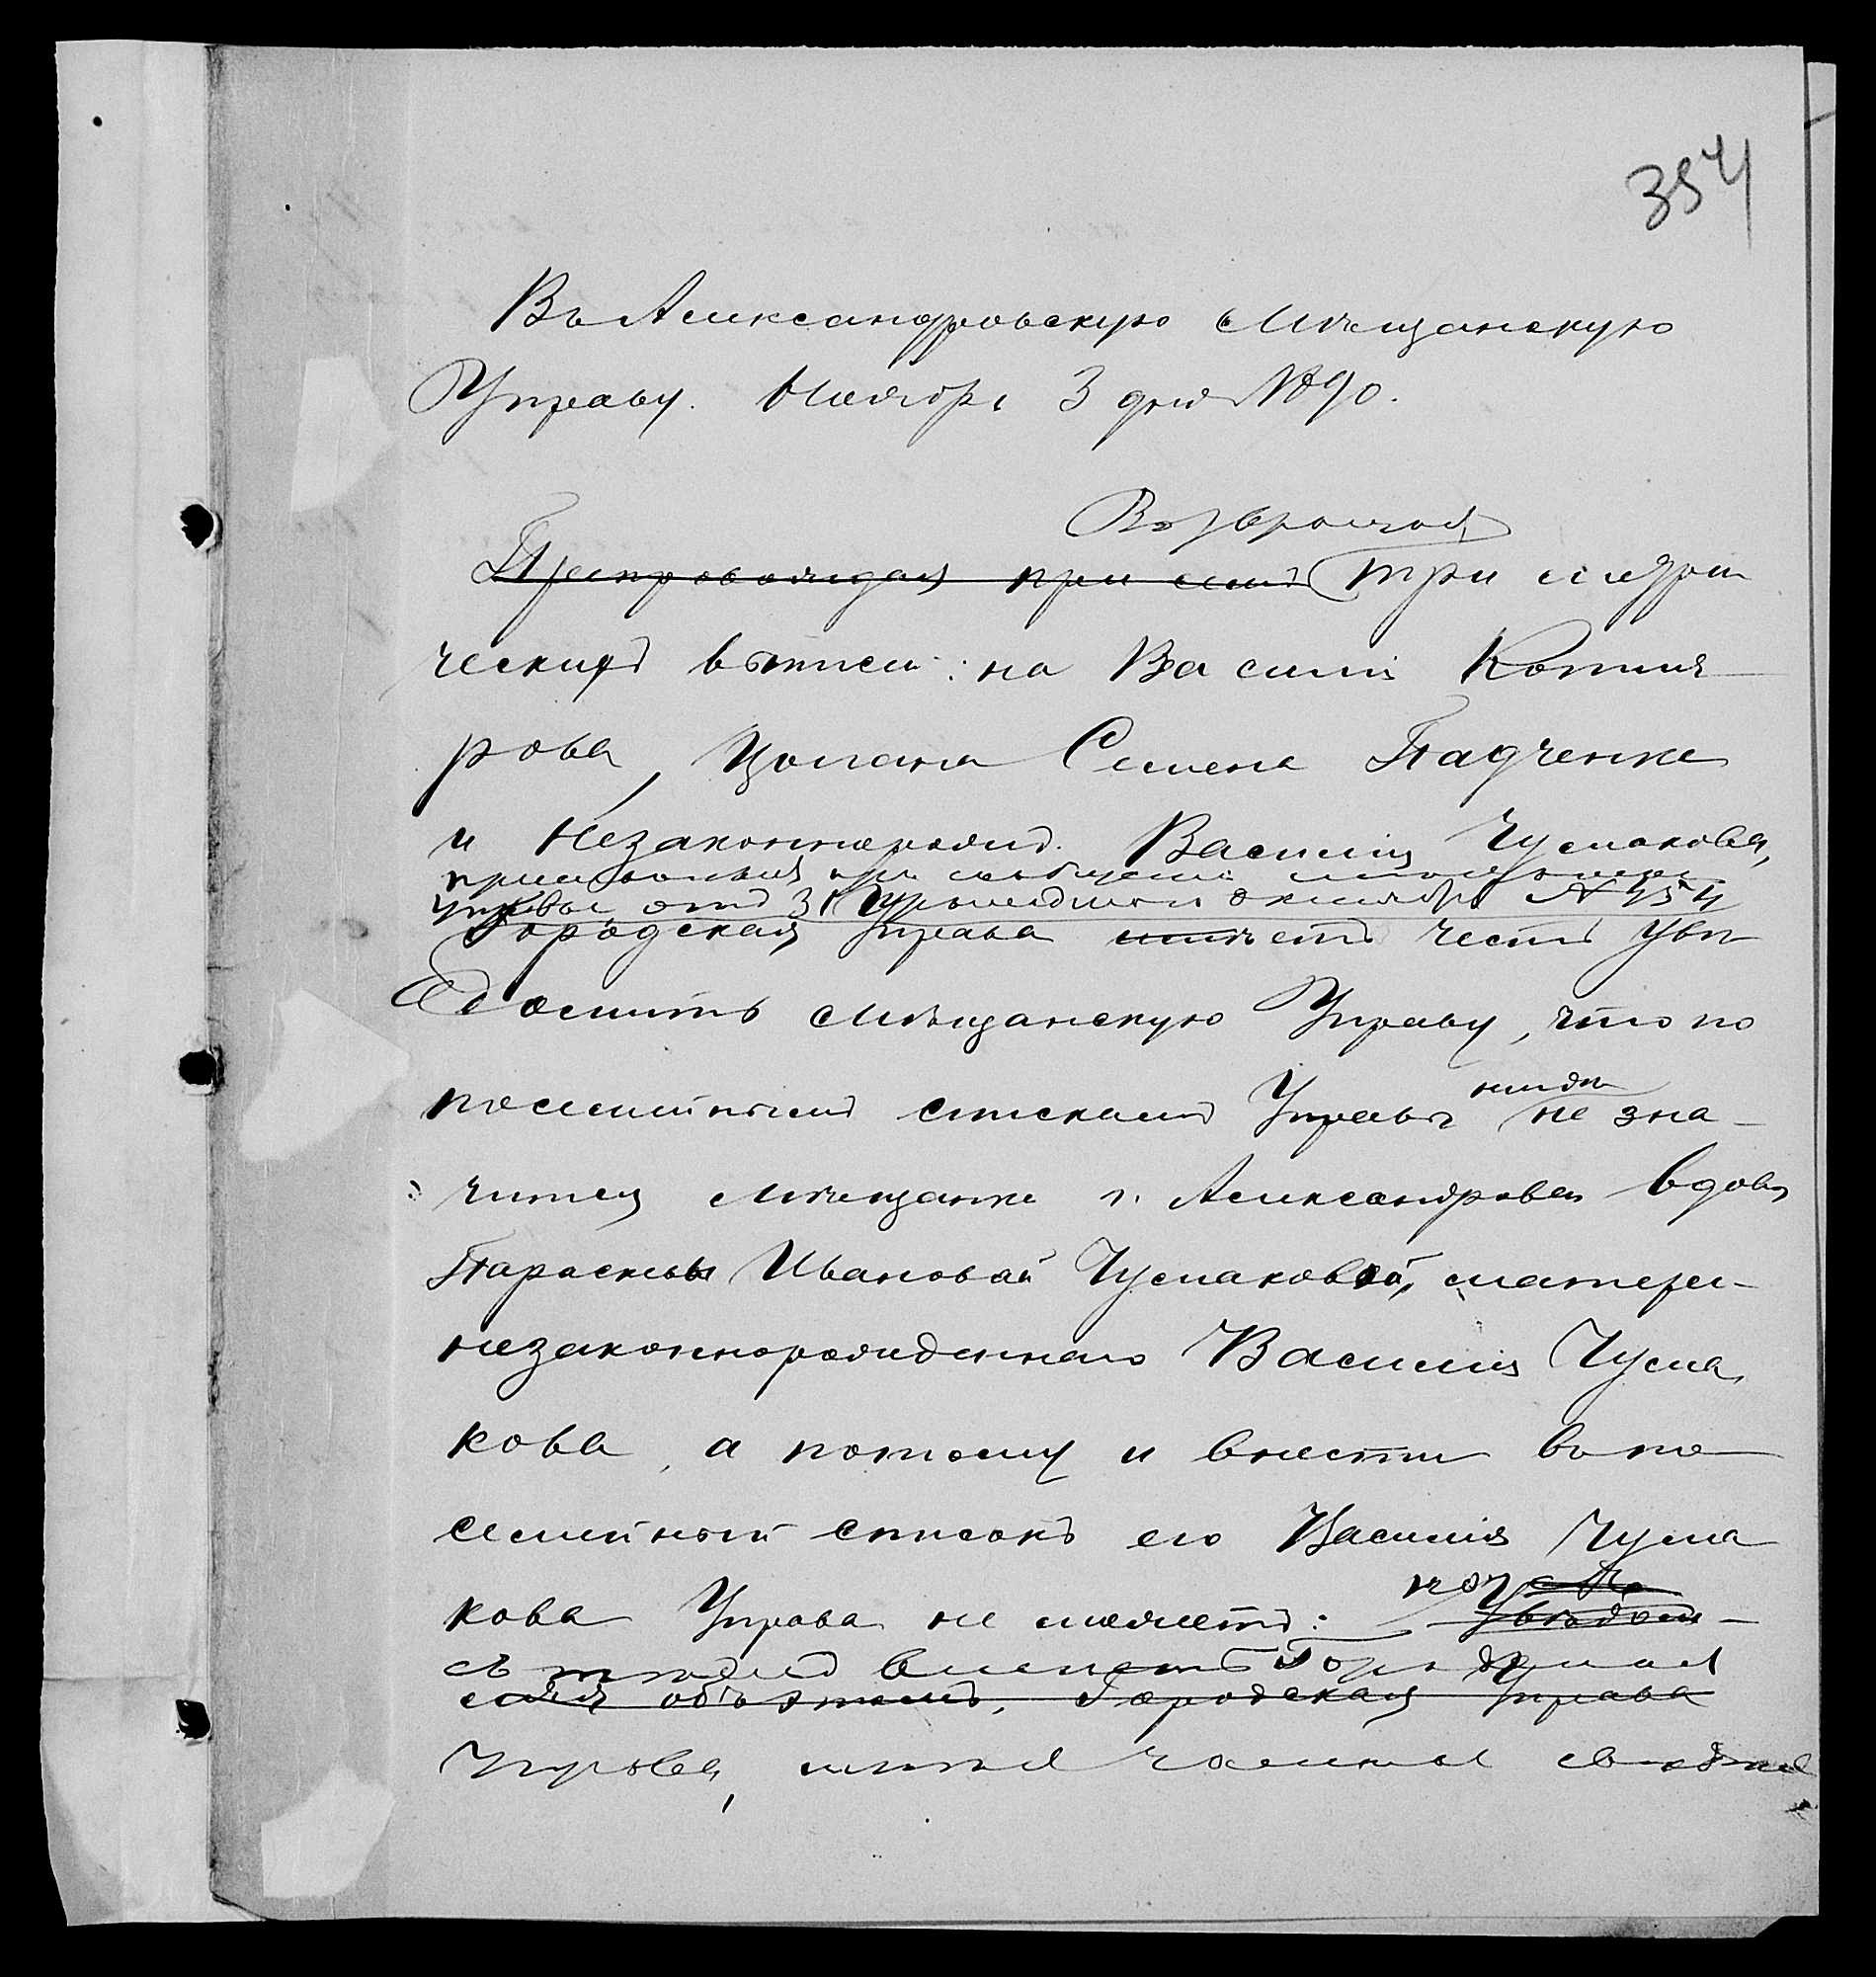 354
Въ Александровскую Мѣщанскую
Управу. Ноября 3 дня №90.
Возвращая
Препровождая при семъ три метри
ческихъ выписи: на Василія Котля
рова, Семена Падченко
и Незаконнорожд. Василія Чумакова,
присланныя при сообщеніи
управы отъ 31 прошедшаго октября № 754
Городская Управа имѣетъ честь увѣ
домить Мѣщанскую Управу, что по
посемейнымъ спискамъ Управы нигдѣ не зна-
чится мѣщанки г. Александровска вдовы
Парасковьи Ивановой Чумаковой, матери
незаконнорожденнаго Василія Чума
кова, а потому и внести въ по
семейный списокъ его Василія Чума
кова Управа не можетъ:
Увѣдом-
съ тѣмъ вмѣстѣ Городская
ляя объ этомъ, Городская Управа
Управа,